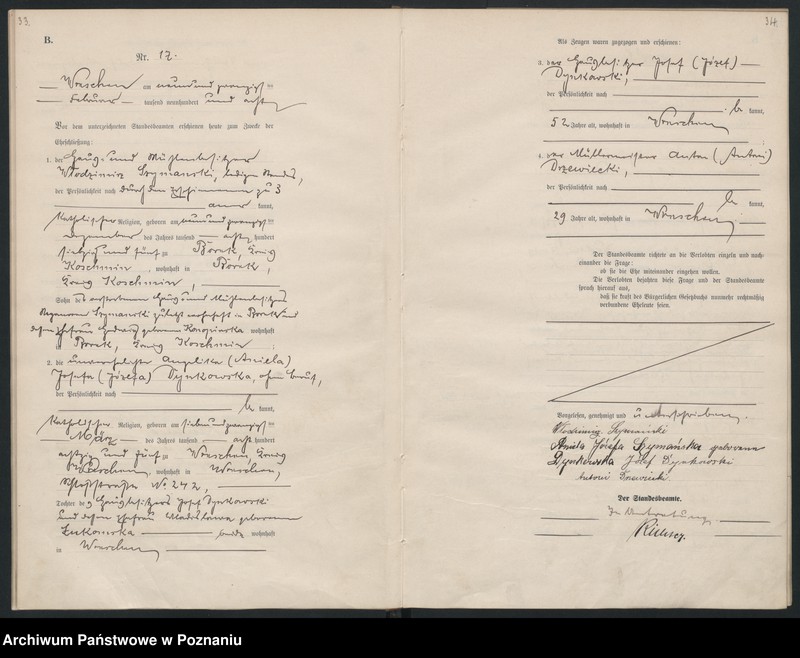 33.
B.
Nr. 12.
Wreschen am neunundzwanzigsten
Februar tausend neunhundert und acht
Vor dem unterzeichneten Standesbeamten erschienen heute zum Zwecke der
Eheschließung:
1. der Haus- und Mühlenbesitzer
Wlodzimir Szymanski, ledigen Standes,
der Persönlichkeit nach durch den zu 3
kannt,
katholischer Religion, geboren am neunundzwanzigsten
Dezember des Jahres tausend acht hundert
siebzig und fünf zu Borek, Kreis
Koschmin, wohnhaft in Borek,
Kreis Koschmin,
Sohn des verstorbenen Haus- und Mühlenbesitzers
Szymanski zuletzt wohnhaft in Borek und
dessen Ehefrau Hedwig geborenen wohnhaft
in Borek, Kreis Koschmin
2. die unverehelichte Angelika (Aniela)
Josefa (Józefa) Dynkowska, ohne Beruf,
der Persönlichkeit nach
be kannt,
katholischer Religion, geboren am siebenundzwanzigsten
März des Jahres tausend acht hundert
achtzig und fünf zu Wreschen, Kreis
Wreschen, wohnhaft in Wreschen,
Schloßstraße No. 242,
Tochter des Hausbesitzers Josef Dynkowski
und dessen Ehefrau Wladislawa geborenen
Żukowska beide wohnhaft
in Wreschen
34.
Als Zeugen waren zugezogen und erschienen:
3. der Hausbesitzer Josef (Józef)
Dynkowski,
der Persönlichkeit nach
be kannt,
52 Jahre alt, wohnhaft in Wreschen
4. der Müllermeister Anton (Antoni)
Drzewiecki,
der Persönlichkeit nach
be kannt,
29 Jahre alt, wohnhaft in Wreschen
Der Standesbeamte richtete an die Verlobten einzeln und nach-
einander die Frage:
ob sie die Ehe miteinander eingehen wollen.
Die Verlobten bejahten diese Frage und der Standesbeamte
sprach hierauf aus,
daß sie kraft des Bürgerlichen Gesetzbuchs nunmehr rechtmäßig
verbundene Eheleute seien.
Vorgelesen, genehmigt und unterschrieben.
Włodzimirz Szymański
Aniela Józefa Szymańska geborene
Dynkowska Józef Dynkowski
Antoni Drzewiecki
Der Standesbeamte.
In Vertretung
Archiwum Państwowe w Poznaniu